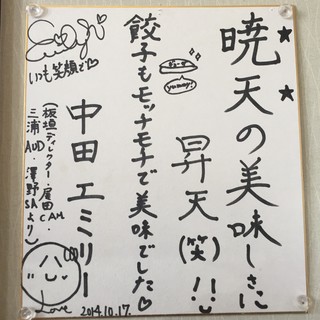 暁天の美味しさに
昇天(笑)!!
yummy!
餃子もモッチモチで美味でした♡
中田エミリー
いつも笑顔で♡
(板垣ディレクター・尾田CAM・
三浦AUD・澤野SAより)
Love
2014.10.17.